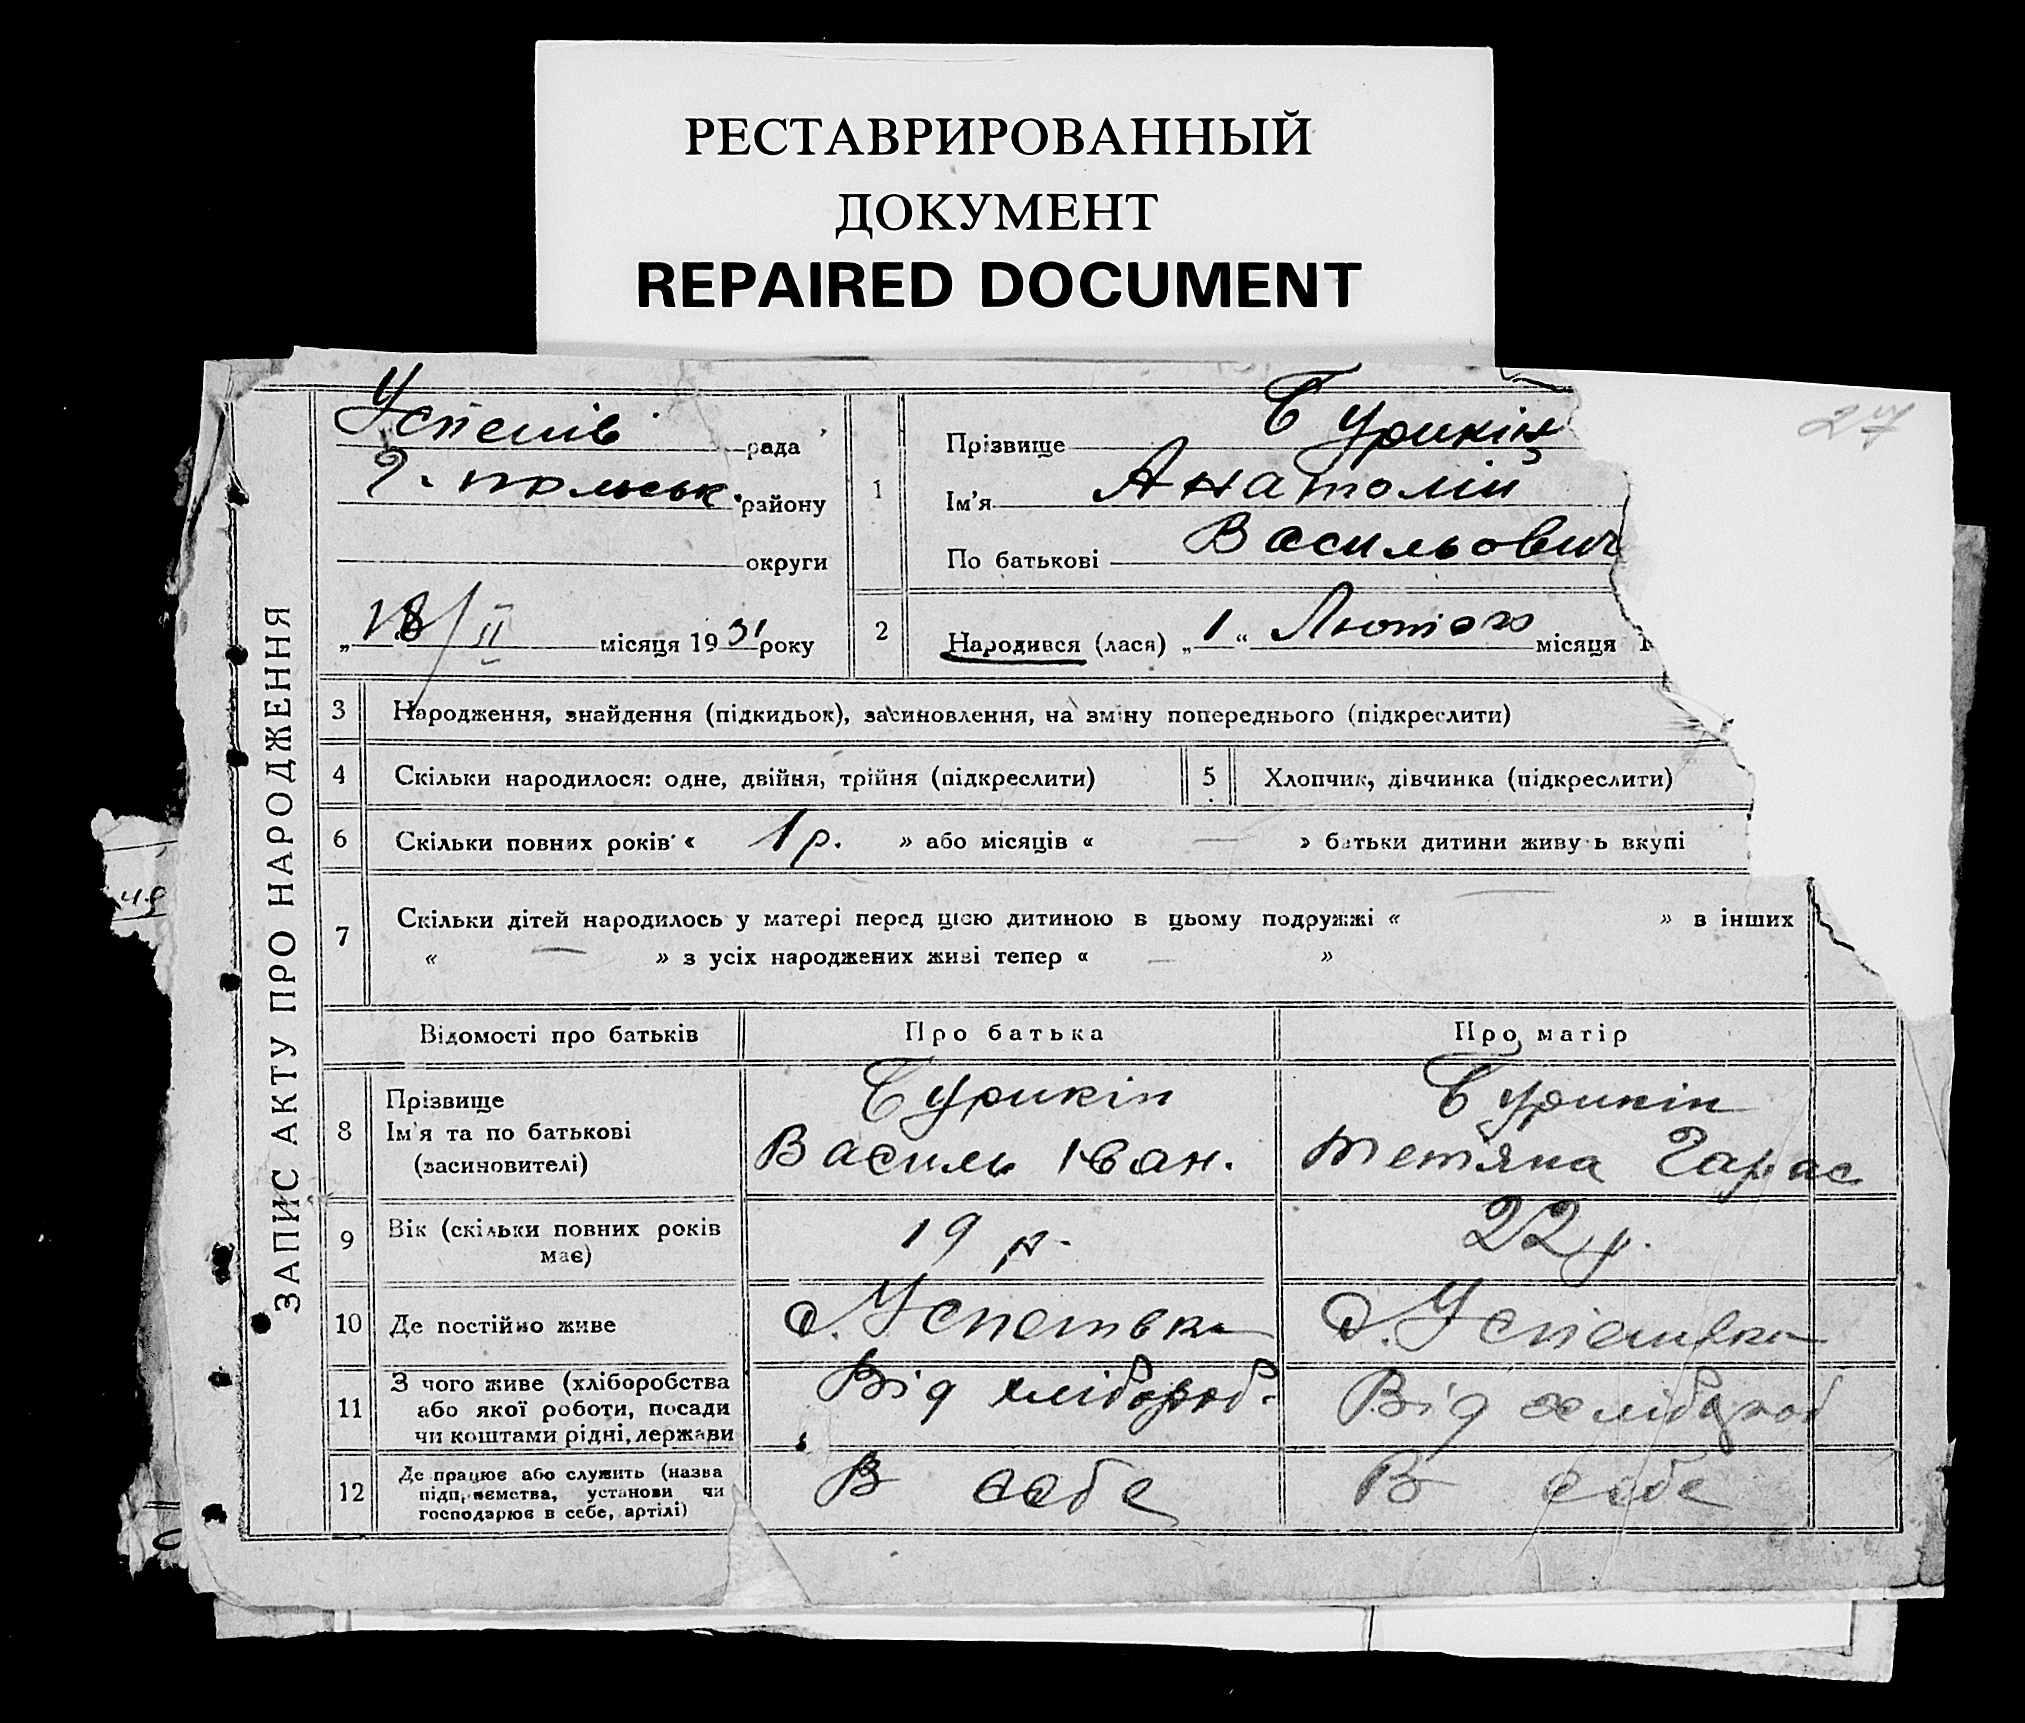 РЕСТАВРИРОВАННЫЙ
ДОКУМЕНТ
REPAIRED DOCUMENT
27
ЗАПИС АКТУ ПРО НАРОДЖЕННЯ
Успенів рада
польськ. району
округи
„18/II місяця 1931 року
1
Прізвище Бурикін
Ім'я Анатолій
По батькові Васильович
2 Народився (лася) „1“ Лютого місяця 1
3 Народження, знайдення (підкидьок), засиновлення, на зміну попереднього (підкреслити)
4 Скільки народилося: одне, двійня, трійня (підкреслити) 5 Хлопчик, дівчинка (підкреслити)
6 Скільки повних років « 1 р. » або місяців « — » батьки дитини живуть вкупі
7 Скільки дітей народилось у матері перед цією дитиною в цьому подружжі « — » в інших
« — » з усіх народжених живі тепер « — »
Відомості про батьків Про батька Про матір
8 Прізвище Бурикін Бурикін
Ім'я та по батькові Василь Іван. Тетяна Тарас
(засиновителі)
9 Вік (скільки повних років має) 19 р. 22 р.
10 Де постійно живе с. Успенівка с. Успенівка
11 З чого живе (хліборобства Від хлібороб. Від хлібороб
або якої роботи, посади
чи коштами рідні, держави
12 Де працює або служить (назва В себе В себе
підприємства, установи чи
господарює в себе, артілі)